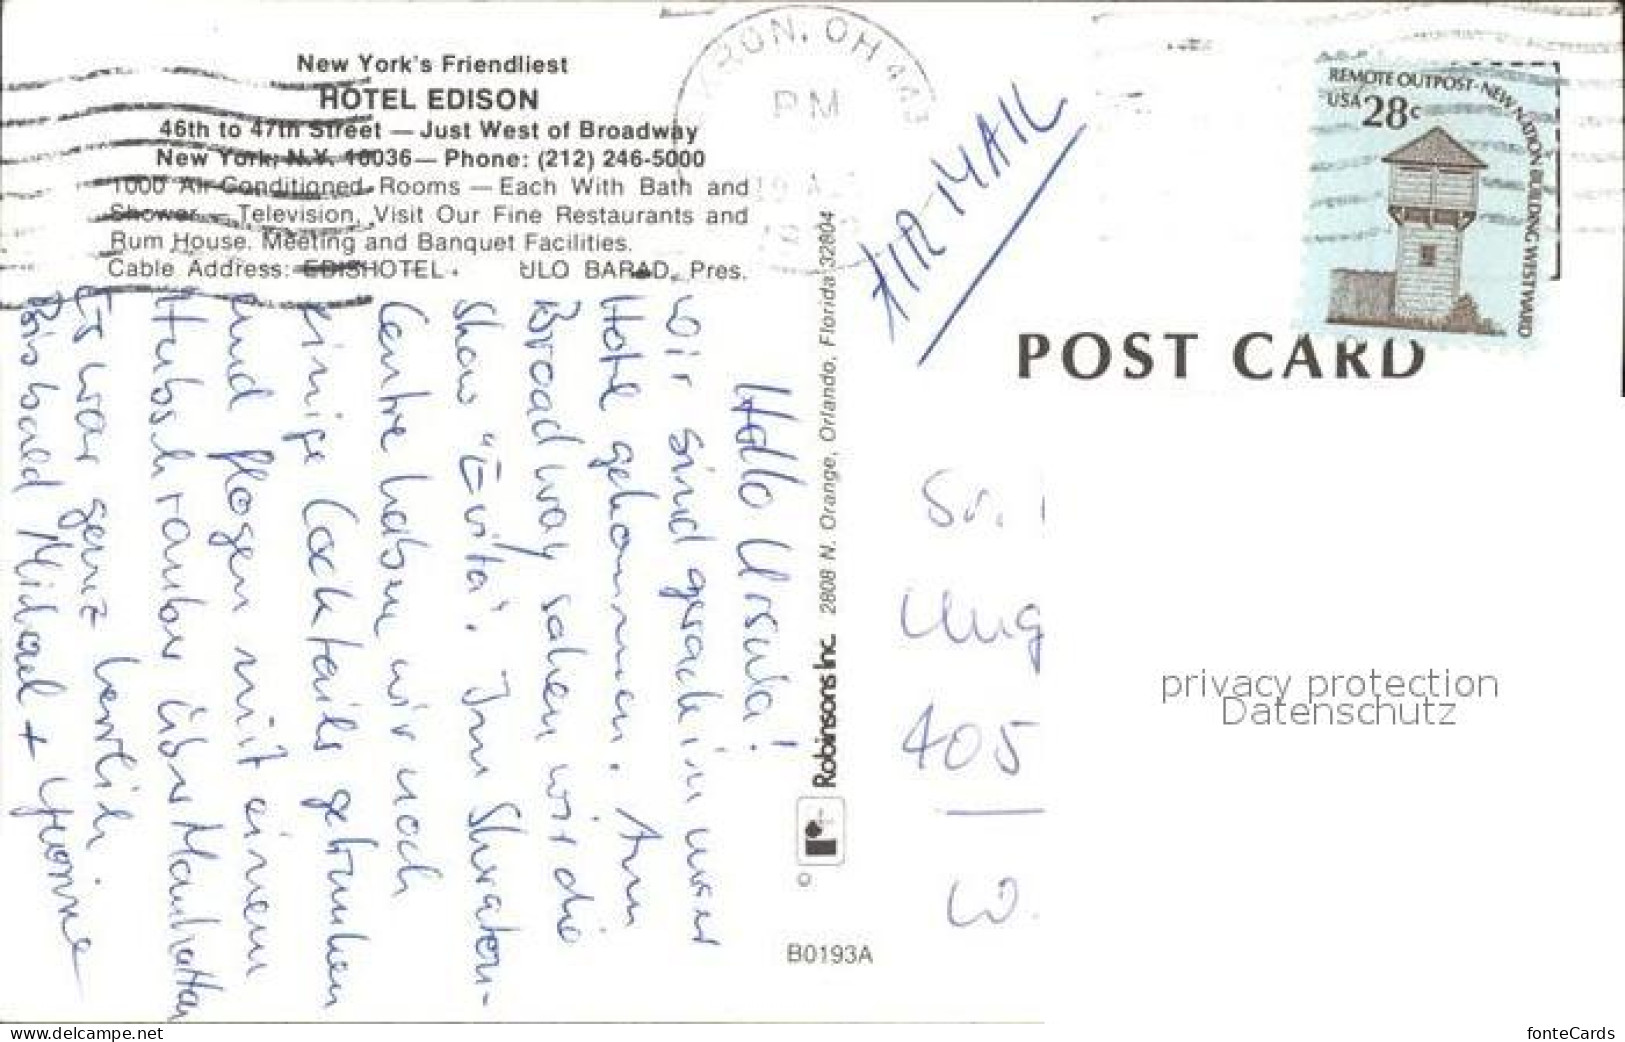 New York's Friendliest
HOTEL EDISON
46th to 47th Street — Just West of Broadway
New York, N.Y. 10036 — Phone: (212) 246-5000
1000 Air-Conditioned Rooms — Each With Bath and
Shower — Television, Visit Our Fine Restaurants and
Rum House. Meeting and Banquet Facilities.
Cable Address: EDISHOTEL. ULO BARAD, Pres.
Hallo Ursula!
Wir sind gerade in unser
Hotel gekommen. Am
Broadway sahen wir die
Show "Evita". Im Sheraton-
Centre haben wir noch
einige Cocktails getrunken
und flogen mit einem
Hubschrauber über Manhattan
Es war ganz herrlich
Bis bald Michael + Yvonne
Robinsons Inc. 2808 N. Orange, Orlando, Florida 32804
r
©
B0193A
AKRON, OH 443
PM
AIR-MAIL
REMOTE OUTPOST-NEW NATION BUILDING WESTWARD
USA 28c
POST CARD
Sr.
Ung
405
W.
privacy protection
Datenschutz
www.delcampe.net
fonteCards